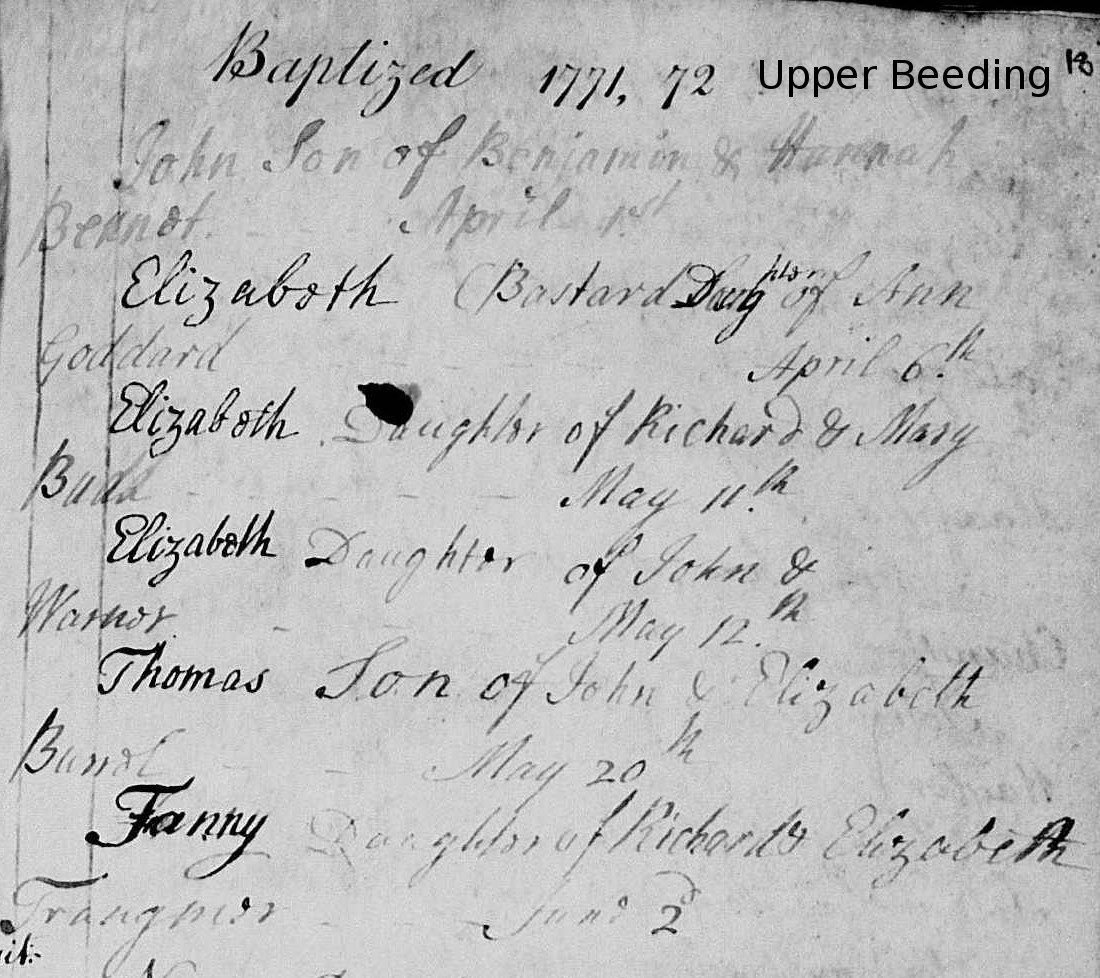 Baptized 1771, 72 Upper Beeding 18
John Son of Benjamin & Hannah
Bennet. April 1st
Elizabeth (Bastard Daughter of Ann
Goddard April 6.th
Elizabeth Daughter of Richard & Mary
Budd May 11.th
Elizabeth Daughter of John &
Warner May 12.th
Thomas Son of John & Elizabeth
May 20th
Fanny Daughter of Richard & Elizabeth
Trangmer June 2d